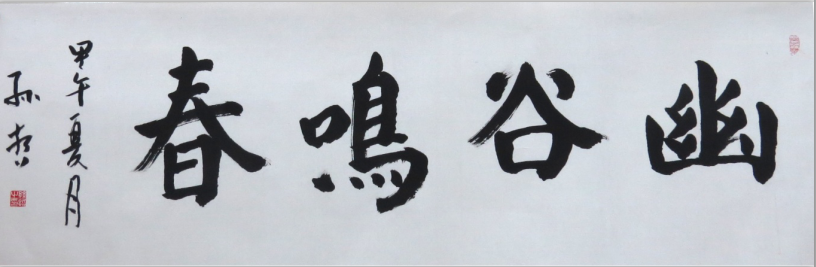 幽谷鳴春
甲午夏月
孙哲